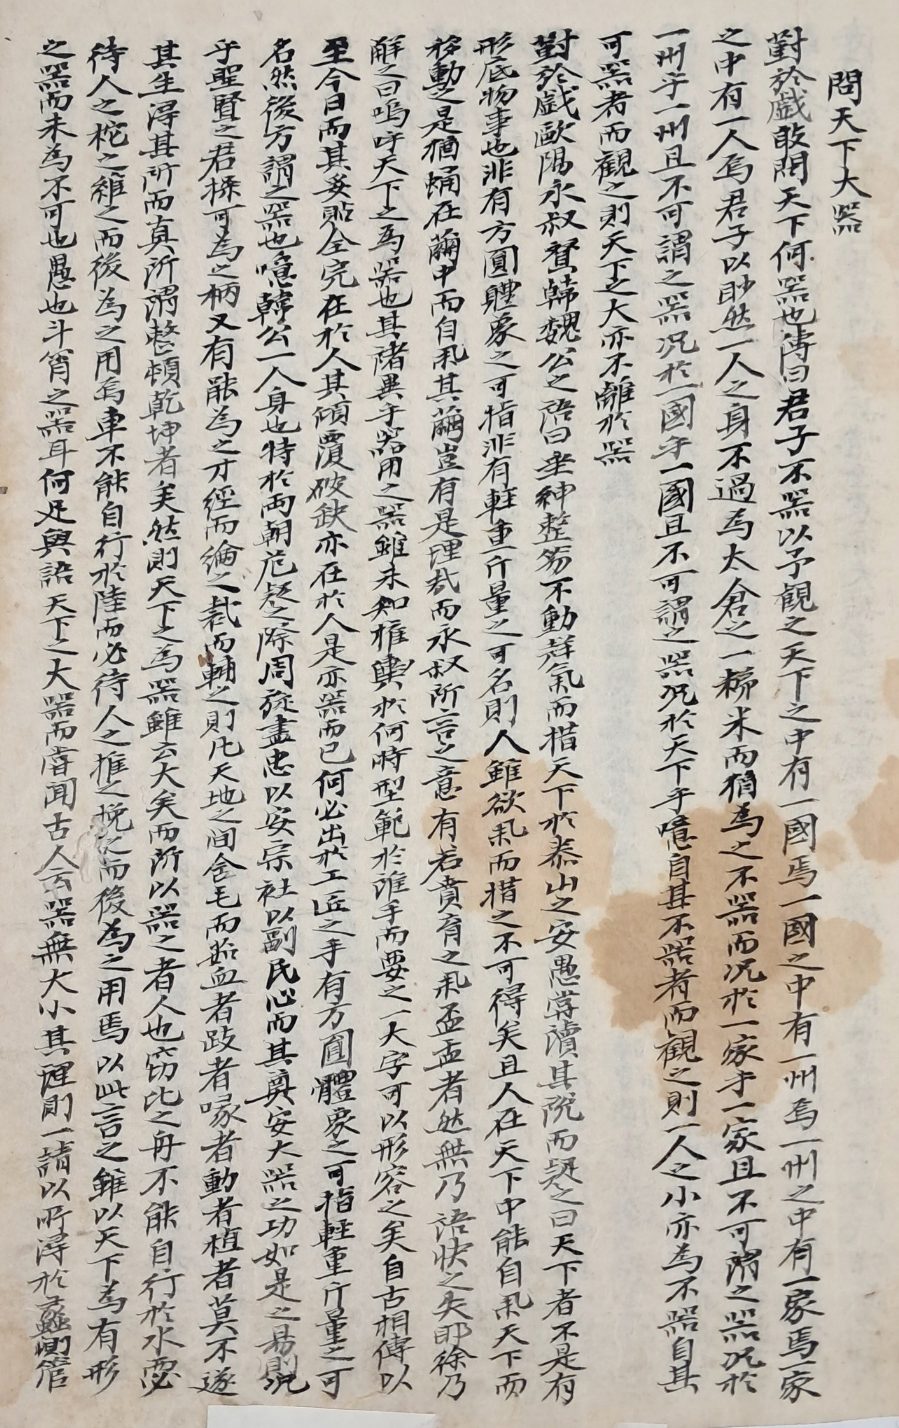 問天下大器
對於戲敢問天下何器也傳曰君子不器以予觀之天下之中有一國焉一國之中有一州焉一州之中有一家焉一家
之中有一人焉君子以眇然一人之身不過為太倉之一稊米而猶為之不器而况於一家乎一家且不可謂之器况於
一州乎一州且不可謂之器况於一國乎一國且不可謂之器况於天下乎噫自其不器者而觀之則一人之小亦為不器自其
可器者而觀之則天下之大亦不離於器
對於戲歐陽永叔賛韓魏公之語曰垂紳整笏不動聲氣而措天下於泰山之安愚嘗讀其說而疑之曰天下者不是有
形底物事也非有方圓體象之可指非有輕重斤量之可名則人雖欲汞而措之不可得矣且人在天下中能自汞天下而
移動之是猶蛹在繭中而自汞其繭豈有是理哉而永叔所言之意有若賁育之汞盃盂者然無乃語快之失耶徐乃
觧之曰嗚呼天下之為器也其諸異乎器用之器雖未知權輿於何時型範於誰手而要之一大字可以形容之矣自古相傳以
至今日而其妥貼全完在於人其傾覆破缺亦在於人是亦器而已何必出於工匠之手有方圓體象之可指輕重斤量之可
名然後方謂之器也噫韓公一人身也特於兩朝危疑之際周旋盡忠以安宗社以副民心而其奠安大器之功如是之易則况
乎聖賢之君操可為之柄又有能為之才經而綸之裁而輔之則凡天地之間含毛而茹血者跂者喙者動者植者莫不遂
其生得其所而真所謂整頓乾坤者矣然則天下之為器雖云大矣而所以器之者人也窃比之舟不能自行於水要必
待人之柁之維之而後為之用焉車不能自行於陸而必待人之推之挽之而後為之用焉以此言之雖以天下為有形
之器而未為不可也愚也斗筲之器耳何足與語天下之大器而嘗聞古人云器無大小其理則一請以所得於蠡測管